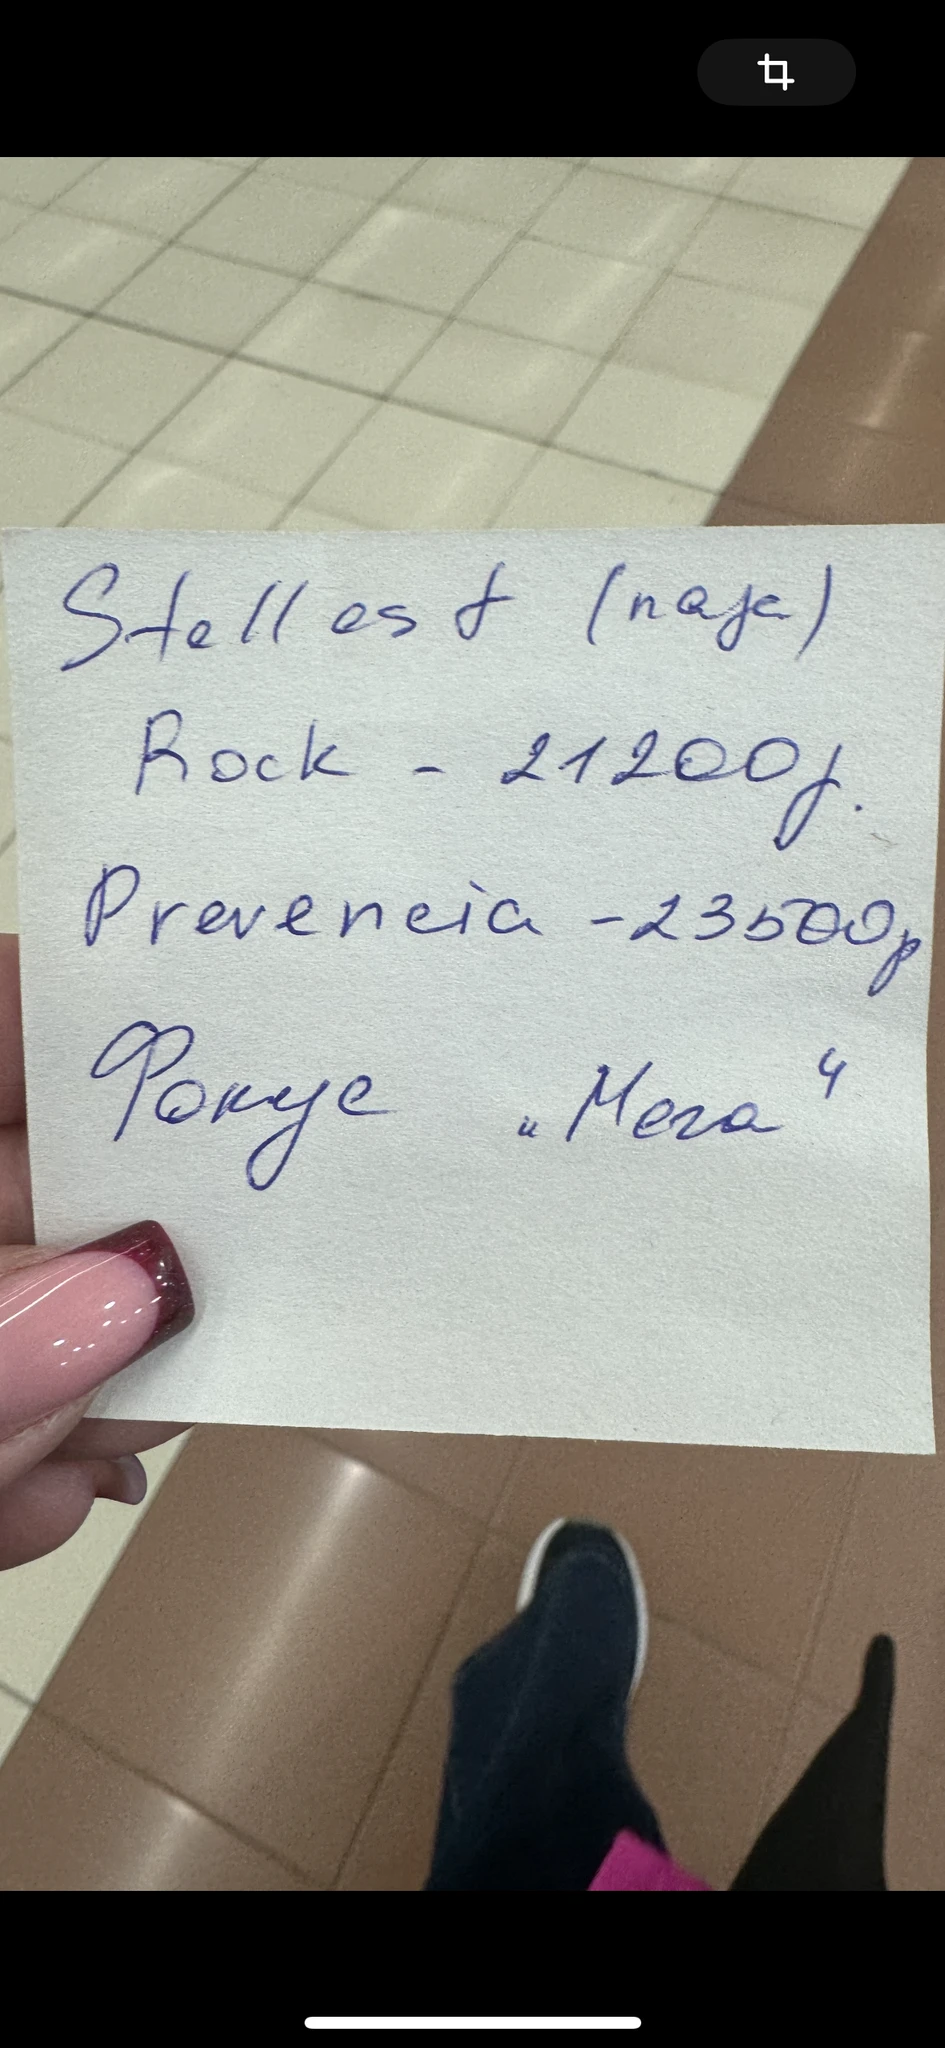 Stellest (пара)
Rock - 21200р.
Prevencia - 23500р
Фокус „Мега“